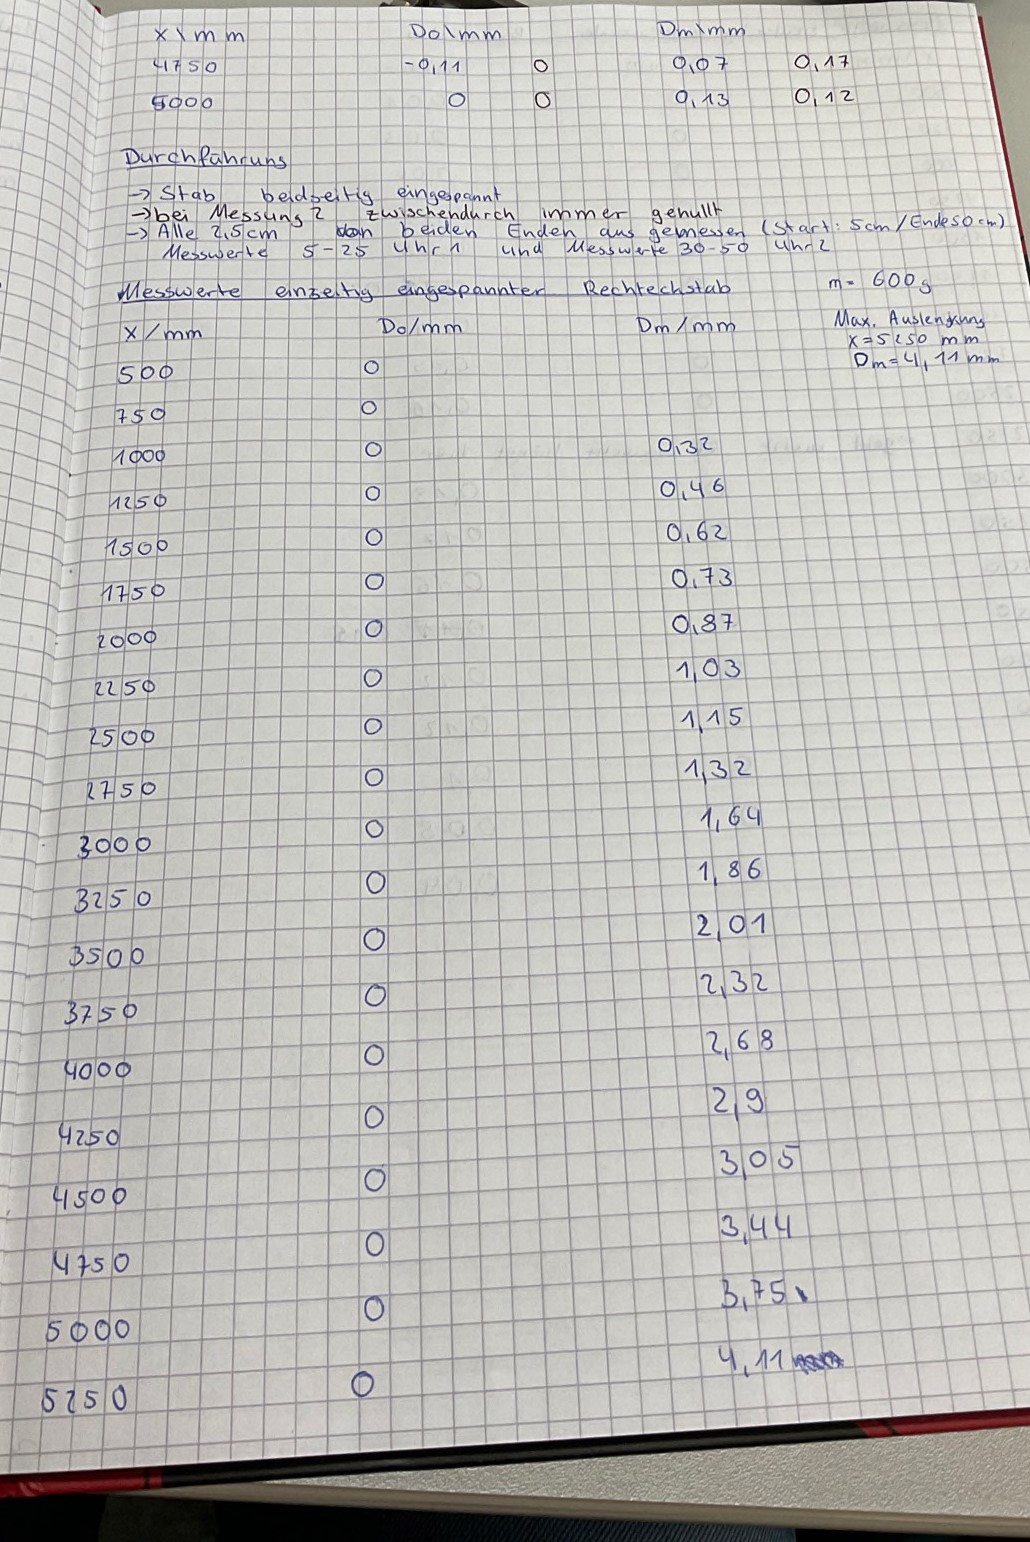 x\mm Do\mm Dm\mm
4750 -0,11 0 0,07 0,17
5000 0 0 0,13 0,12
Durchführung
-> Stab beidseitig eingespannt
-> bei Messung 2 zwischendurch immer genullt
-> Alle 2,5cm von beiden Enden aus gemessen (Start: 5cm/Ende50cm)
Messwerte 5-25 Uhr 1 und Messwerte 30-50 Uhr 2
Messwerte einzeitig eingespannter Rechteckstab m= 600g
x/mm Do/mm Dm/mm Max. Auslenkung
x=5250 mm
Dm=4,11 mm
500 0
750 0
1000 0 0,32
1250 0 0,46
1500 0 0,62
1750 0 0,73
2000 0 0,87
2250 0 1,03
2500 0 1,15
2750 0 1,32
3000 0 1,64
3250 0 1,86
3500 0 2,01
3750 0 2,32
4000 0 2,68
4250 0 2,9
4500 0 3,05
4750 0 3,44
5000 0 3,75
5250 0 4,11